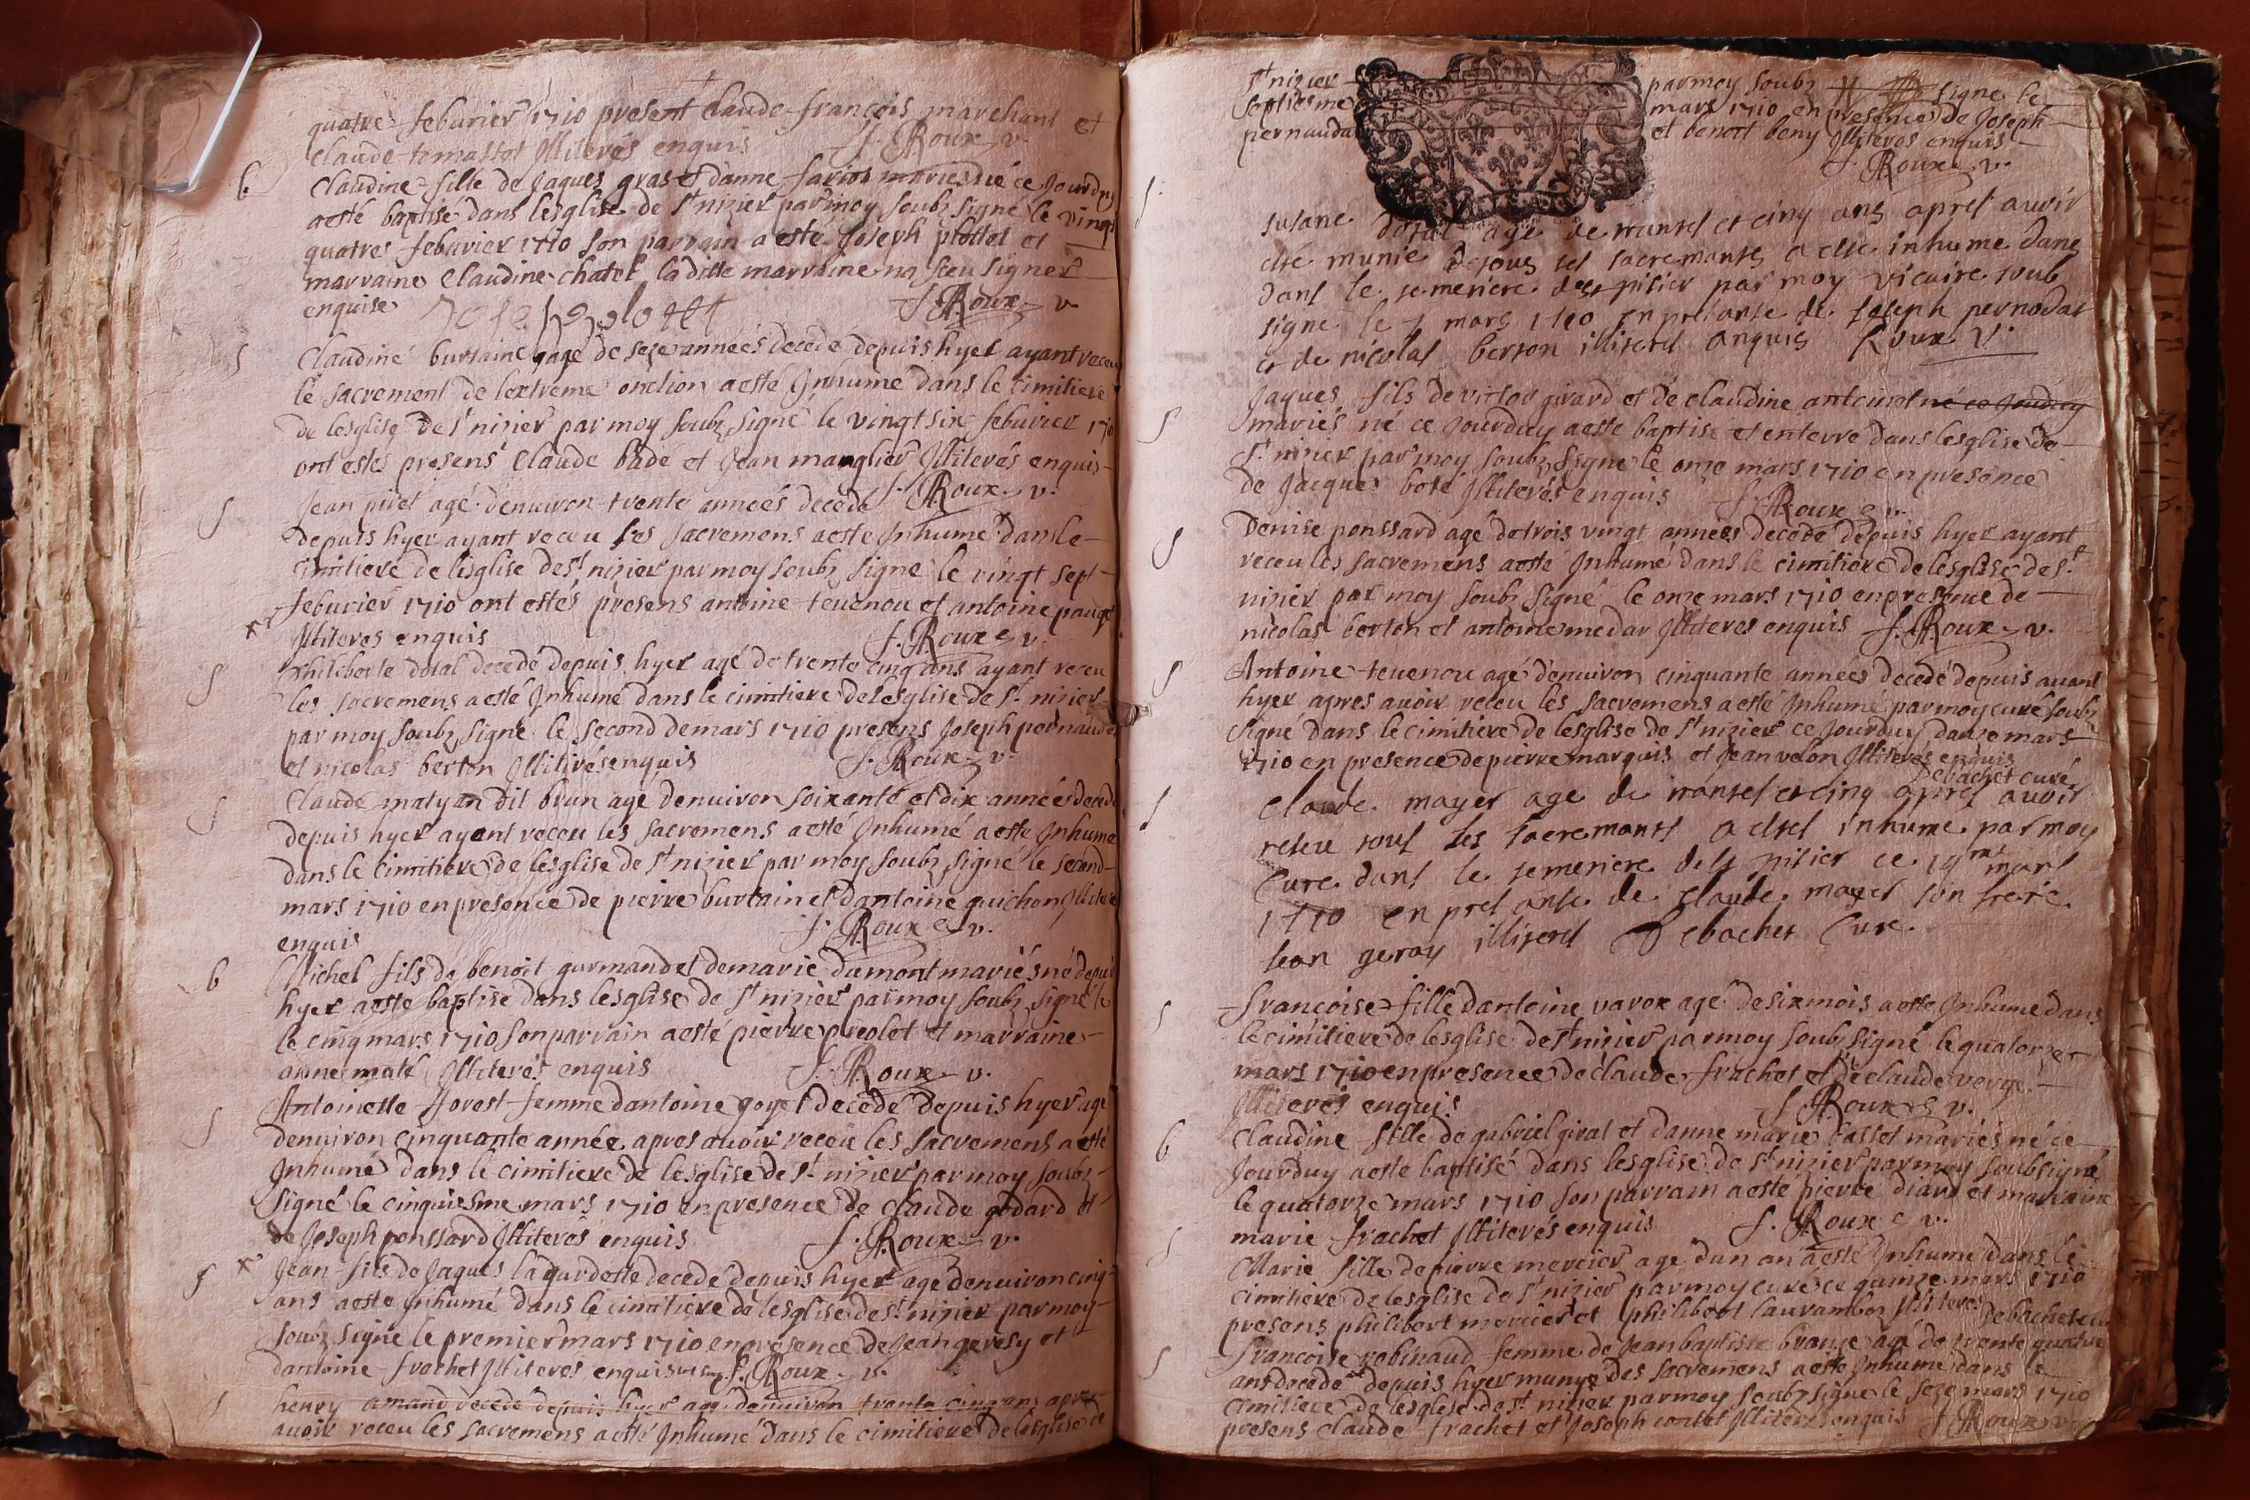 quatre feburier 1710 present Claude françois marchant et
Claude tomassot Illiterés enquis J. Roux v.
b Claudine fille de Jaques gras et danne mariés né ce Jourduy
aesté baptisé dans lesglise de St nizier par moy soubz signé le vingt
quatre feburier 1710 son parrain a esté Joseph plottet et
marraine Claudine chatel laditte marraine na sceu signer
enquise J. Roux v
S Claudine burtaine agé de seze années decedé depuis hyer ayant receu
le sacrement de lextreme onction aesté Inhumé dans le cimitiere
de lesglise de St nizier par moy soubz signé le vingt six feburier 1710
ont estés presens Claude badé et Jean manglier Illiterés enquis
J. Roux v.
S Jean pitet agé denuiron trente années decedé
depuis hyer ayant receu les sacremens aesté Inhumé dans le
cimitiere de lesglise de St nizier par moy soubz signé le vingt sept
feburier 1710 ont estés presens antoine teuenou et antoine pauget
Illiteres enquis J. Roux v.
S philiberte dotal decedé depuis hyer agé de trente cinq ans ayant receu
les sacremens aesté Inhumé dans le cimitiere de lesglise de St nizier
par moy soubz signé le second de mars 1710 presens Joseph pernaudat
et nicolas berton Illiterés enquis J. Roux v.
S Claude matyan dit brun agé denuiron soixante et dix années decedé
depuis hyer ayant receu les sacremens aesté Inhumé aesté Inhumé
dans le cimitiere de lesglise de St nizier par moy soubz signé le second
mars 1710 en presence de pierre burtain et dantoine guichon Illiteres
enquis J. Roux v.
b Michel fils de benoit gurmandet de marie dumont mariés né depuis
hyer aesté baptise dans lesglise de St nizier par moy soubz signé le
le cinq mars 1710 son parrain aesté pierre preolet et marraine
anne maté Illiterés enquis J. Roux v.
S Antoinette forest femme dantoine goyet decedé depuis hyer agé
denuiron cinquante année apres auoir receu les sacremens aesté
Inhumé dans le cimitiere de lesglise de St nizier par moy soubz
signé le cinquiesme mars 1710 en presence de Claude godard et
de Joseph ponssard Illiterés enquis J. Roux v.
S Jean fils de Jaques la gardette decedé depuis hyer agé denuiron cinq
ans aesté Inhumé dans le cimitiere de lesglise de St nizier par moy
soubz signé le premier mars 1710 en presence de Jean geresy et
dantoine frachet Illiteres enquis J. Roux v.
S henry amand decedé depuis hyer agé denuiron trente cinq ans apres
auoir receu les sacremens aesté Inhumé dans le cimitiere de lesglise de
St nizier par moy soubz signe le
septiesme mars 1710 en presence de Joseph
pernaudat et benoit beny Illiteres enquis
J. Roux v.
S susane dotal agé de trantes et cinq ans apres auoir
esté munie de tous ses sacremants a esté inhume dans
dans le semetiere de st nisier par moy vicaire soub
signe le 7 mars 1710 en presanse de Joseph pernodat
et de nicolas berton illiteres anquis Roux V.
S Jaques fils de victor girard et de claudine antoinet né ce Jourduy
mariés né ce Jourduy aesté baptise et enterré dans lesglise de
St nizier par moy soubz signé le onze mars 1710 en presence
de Jacques boté Illiterés enquis J. Roux v.
S Denise ponssard agé de trois vingt années decedé depuis hyer ayant
receu les sacremens aesté Inhumé dans le cimitiere de lesglise de St
nizier par moy soubz signé le onze mars 1710 en presence de
nicolas berton et antoine medar Illiteres enquis J. Roux v.
S Antoine teuenou agé denuiron cinquante années decedé depuis auant
hyer apres auoir receu les sacremens aesté Inhumé par moy curé soubz
signé dans le cimitiere de lesglise de St nizier ce Jourduy douze mars
1710 en presence de pierre marquis et Jean velon Illiterés enquis
Debachet curé
S Claude mayer age de trantes et cinq apres auoir
reseu tous les sacremants a estes inhume par moy
Cure dans le semetiere de st nisier ce mars
1710 en presanse de Claude mayer son freire
Jean geray illiteres Debachet Cure.
S francoise fille dantoine varox agé de six mois aesté Inhumé dans
le cimitiere de lesglise de St nizier par moy soubz signé le quatorze
mars 1710 en presence de claude frachet et de claude verge
Illiteres enquis J. Roux v.
b Claudine fille de gabriel giral et danne marie tasset mariés né ce
Jourduy aesté baptisé dans lesglise de St nizier par moy soubsigné
le quatorze mars 1710 son parrain aesté pierre diard et marraine
marie frachet Illiterés enquis J. Roux v.
S Marie fille de pierre mercier agé dun an aesté Inhumé dans le
cimitiere de lesglise de St nizier par moy curé ce quinze mars 1710
presens philibert mercier et philibert laurambon Illiteres Debachet curé
S francoise robinaud femme de Jean baptiste brange agé de trente quatre
ans decedé depuis hyer munye des sacremens aesté Inhumé dans le
cimitiere de lesglise de St nizier par moy soubz signé le seze mars 1710
presens claude frachet et Joseph Illiterés enquis J. Roux v.